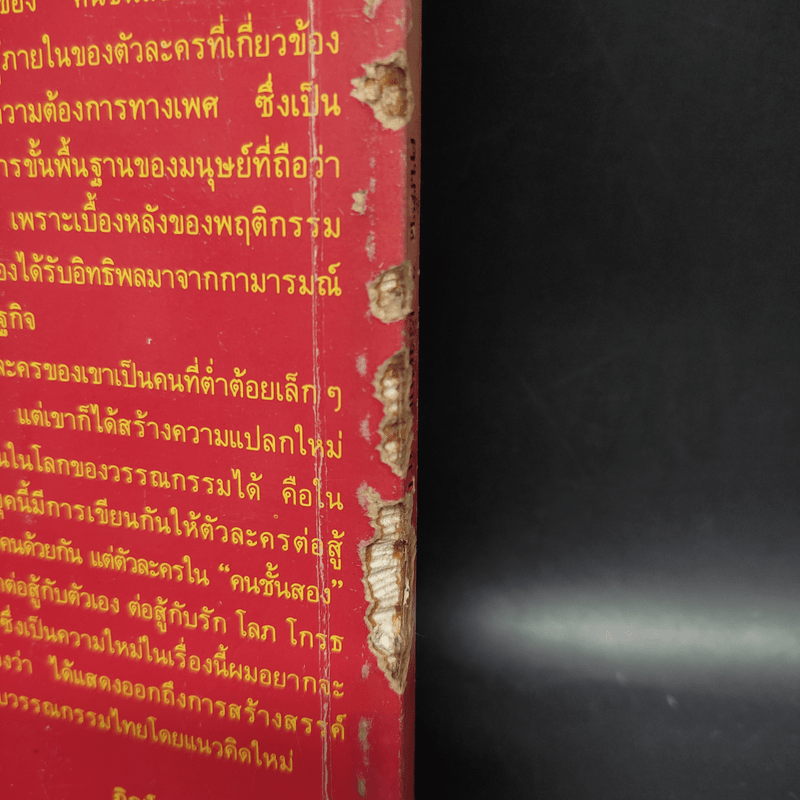 ของ
ภายในของตัวละครที่เกี่ยวข้อง
ความต้องการทางเพศ ซึ่งเป็น
การขั้นพื้นฐานของมนุษย์ที่ถือว่า
เพราะเบื้องหลังของพฤติกรรม
องได้รับอิทธิพลมาจากกามารมณ์
ฐกิจ
ละครของเขาเป็นคนที่ต่ำต้อยเล็ก ๆ
แต่เขาก็ได้สร้างความแปลกใหม่
นในโลกของวรรณกรรมได้ คือใน
ยุคนี้มีการเขียนกันให้ตัวละครต่อสู้
คนด้วยกัน แต่ตัวละครใน “คนชั้นสอง”
ต่อสู้กับตัวเอง ต่อสู้กับรัก โลภ โกรธ
ซึ่งเป็นความใหม่ในเรื่องนี้ผมอยากจะ
งว่า ได้แสดงออกถึงการสร้างสรรค์
วรรณกรรมไทยโดยแนวคิดใหม่